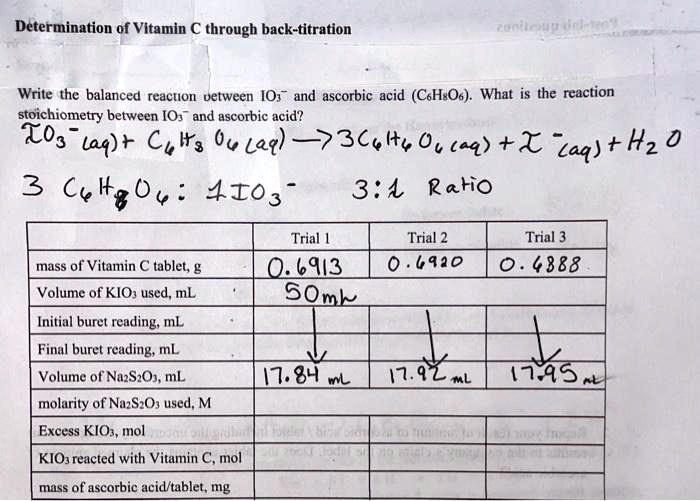 Determination of Vitamin C through back-titration
Write the balanced reaction between IO₃⁻ and ascorbic acid (C₆H₈O₆). What is the reaction
stoichiometry between IO₃⁻ and ascorbic acid?
IO₃⁻(aq) + C₆H₈O₆(aq) → 3C₆H₆O₆(aq) + I⁻(aq) + H₂O
3 C₆H₈O₆ : 1IO₃⁻ 3:1 Ratio
Trial 1 Trial 2 Trial 3
mass of Vitamin C tablet, g 0.6913 0.6920 0.6888
Volume of KIO₃ used, mL 50mL
Initial buret reading, mL
Final buret reading, mL
Volume of Na₂S₂O₃, mL 17.84 mL 17.92 mL 17.95 mL
molarity of Na₂S₂O₃ used, M
Excess KIO₃, mol
KIO₃ reacted with Vitamin C, mol
mass of ascorbic acid/tablet, mg